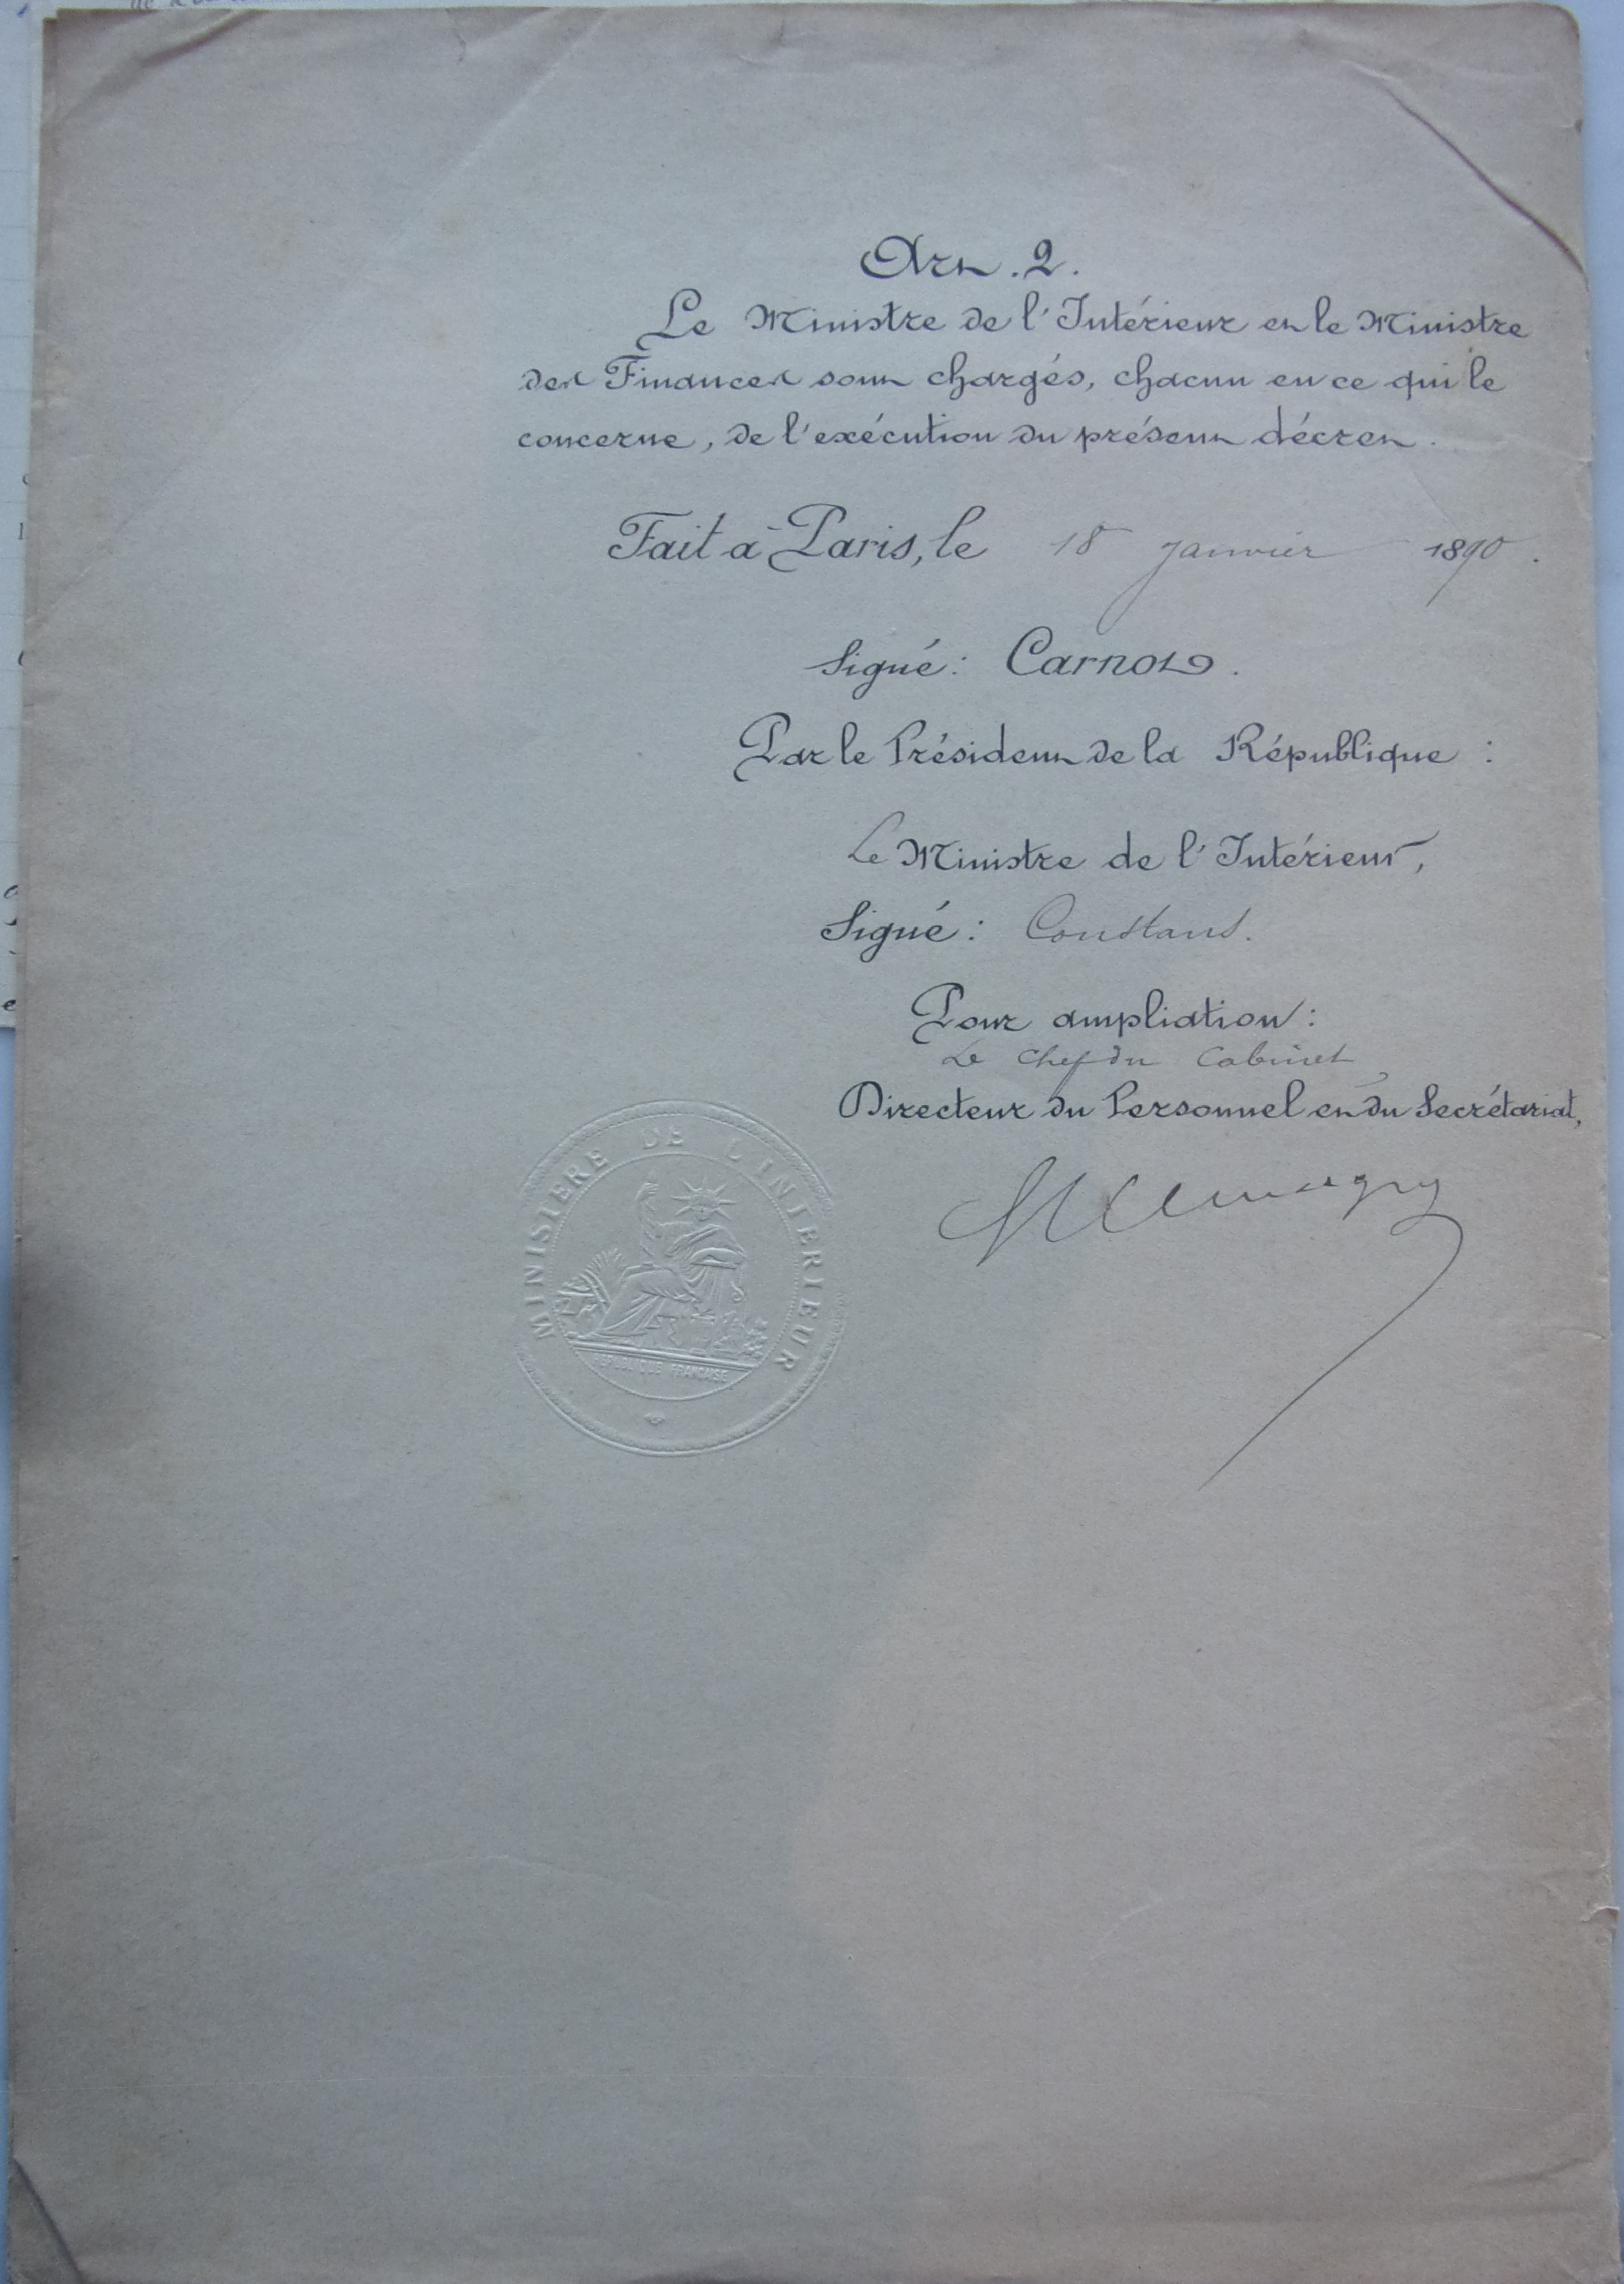 Art. 2.
Le Ministre de l'Intérieur et le Ministre
des Finances sont chargés, chacun en ce qui le
concerne, de l'exécution du présent décret.
Fait à Paris, le 18 janvier 1890.
Signé: Carnot.
Par le Président de la République :
Le Ministre de l'Intérieur,
Signé: Constans.
Pour ampliation:
Le Chef du Cabinet
Directeur du Personnel et du Secrétariat,
MINISTERE DE L'INTERIEUR
REPUBLIQUE FRANCAISE